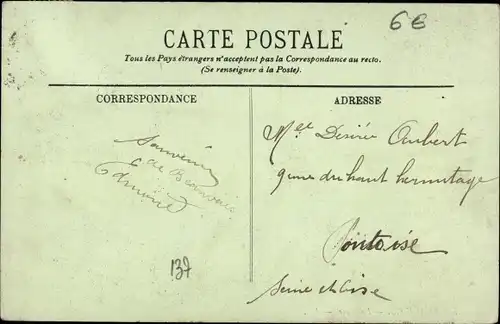 66
CARTE POSTALE
Tous les Pays étrangers n'acceptent pas la Correspondance au recto.
(Se renseigner à la Poste).
CORRESPONDANCE
ADRESSE
Souvenir
de Beauvais
Edmond
137
Mlle Désirée Aubert
du haut hermitage
Pontoise
Seine et Oise